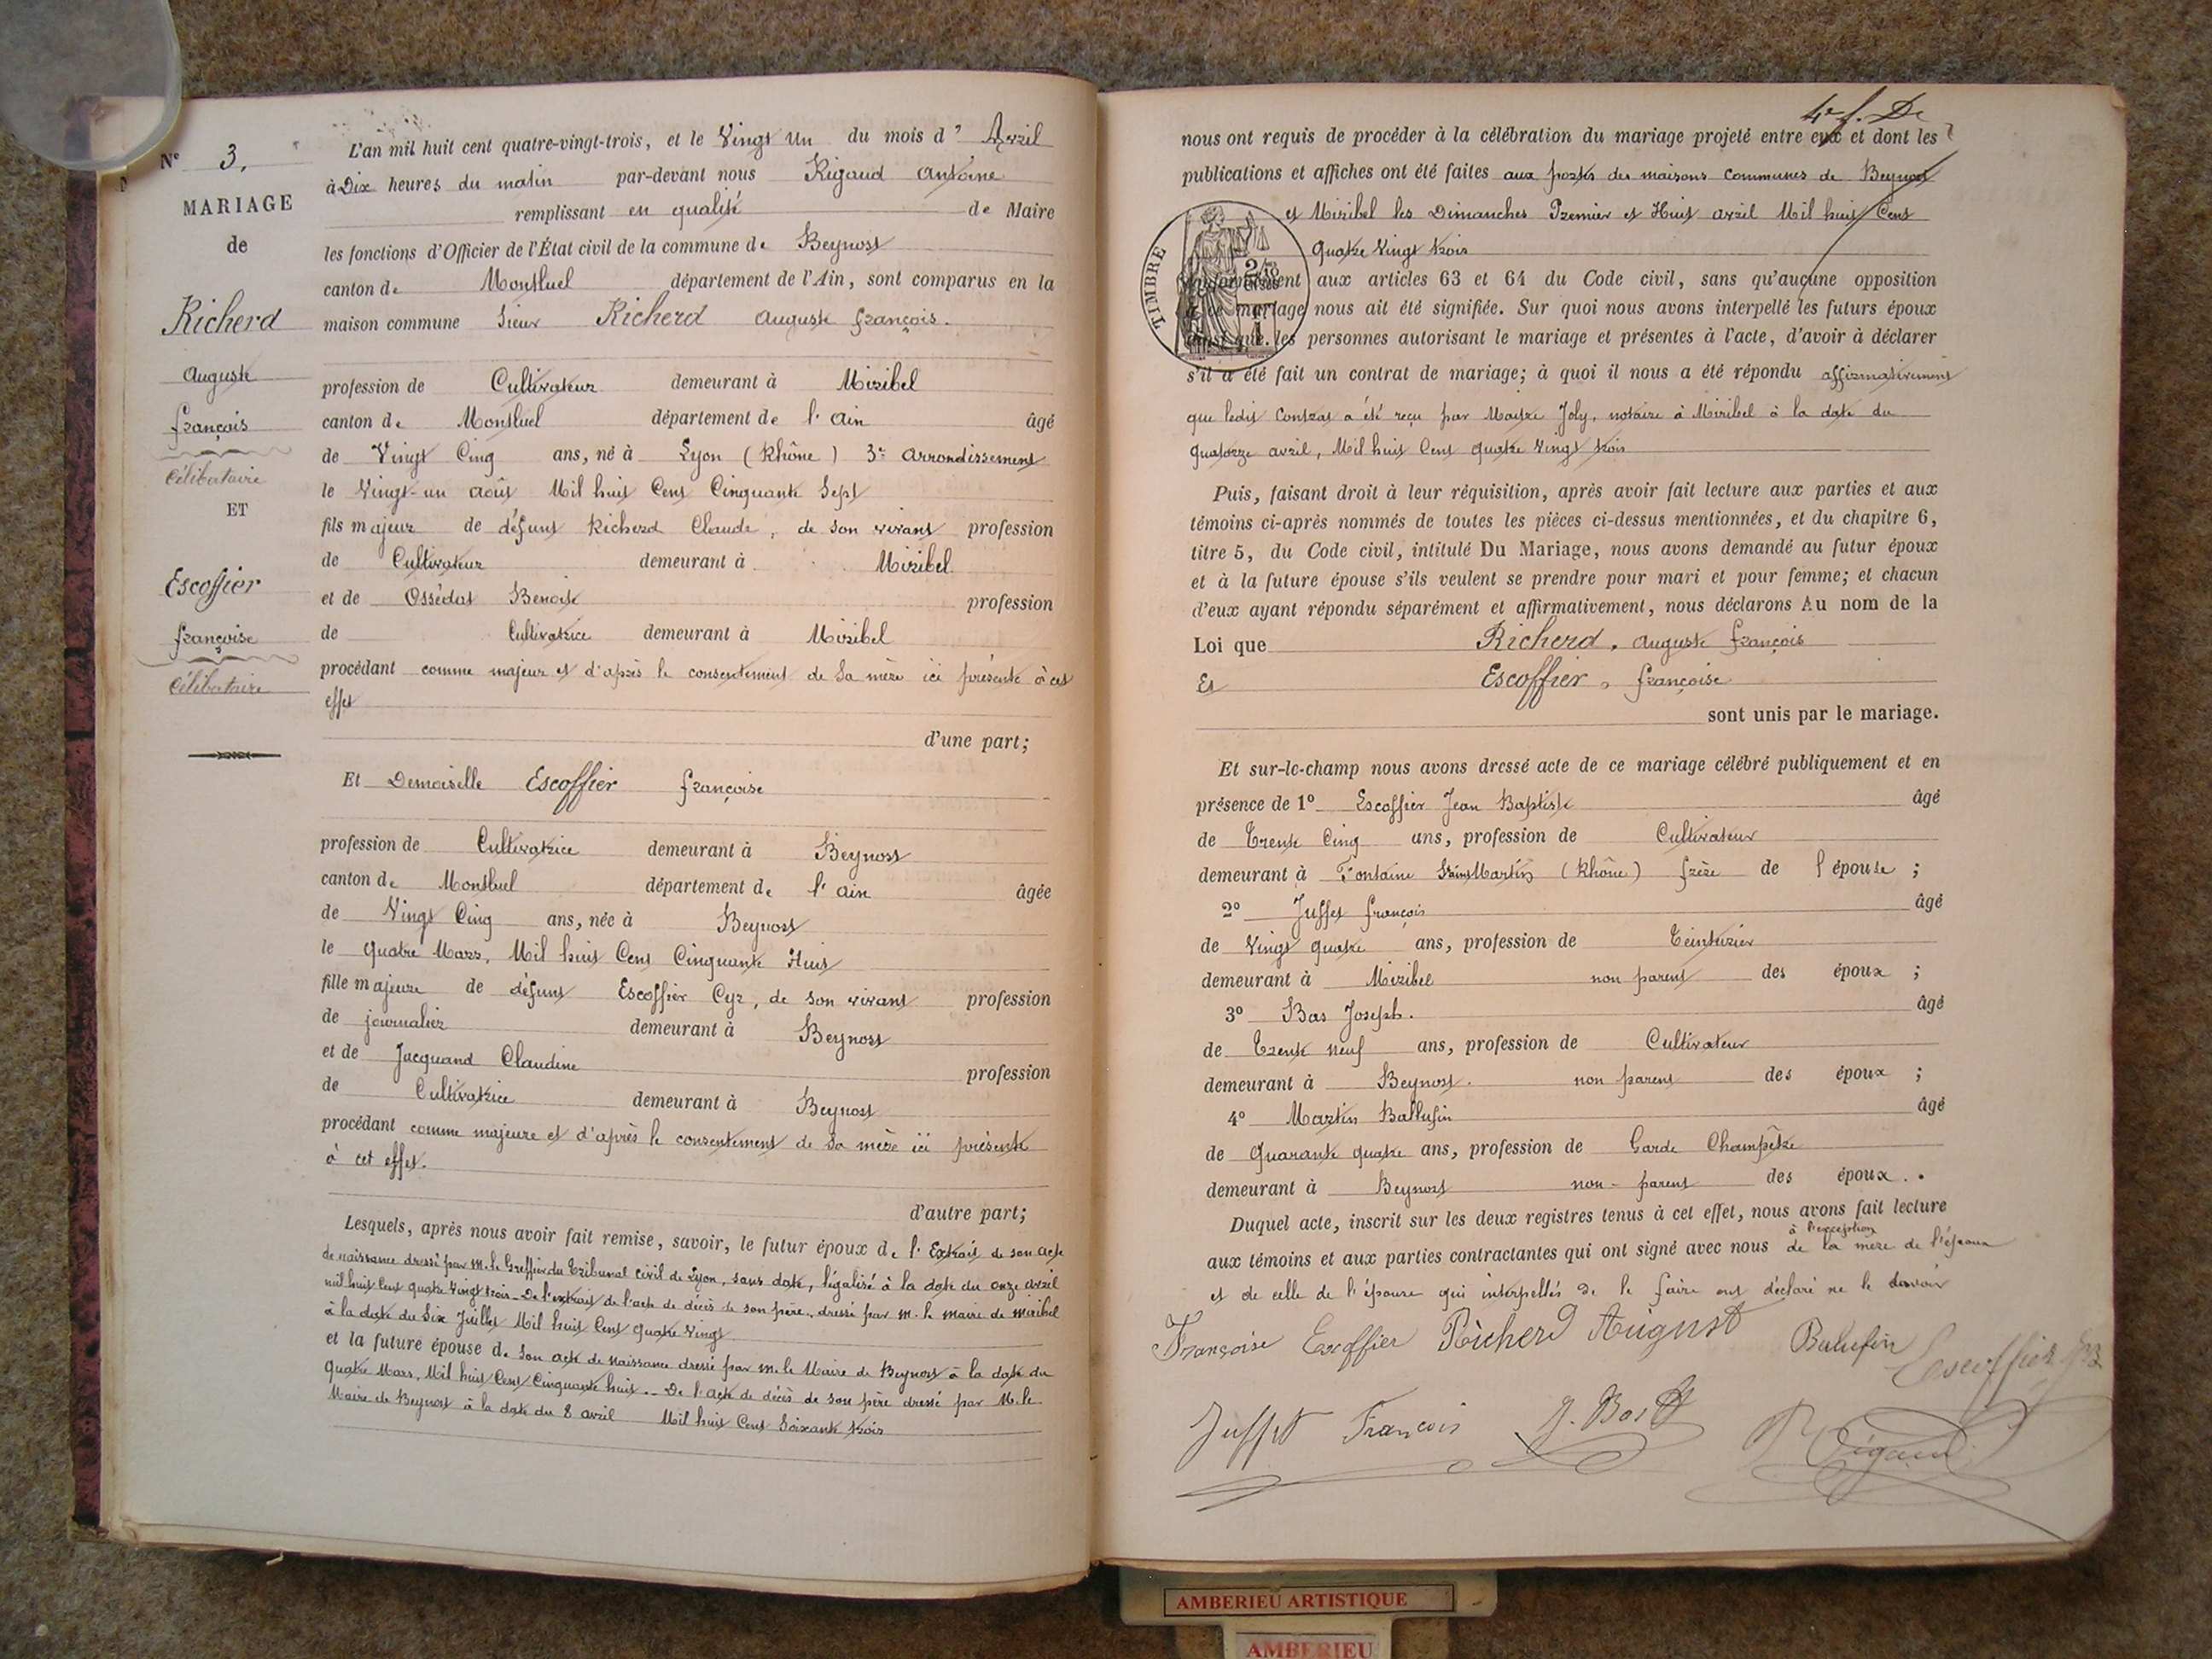 N° 3.
MARIAGE
de
Richerd
Auguste
françois
Célibataire
ET
Escoffier
françoise
Célibataire
L'an mil huit cent quatre-vingt-trois, et le Vingt un du mois d' Avril
à Dix heures du matin par-devant nous Rigaud Antoine
remplissant en qualité de Maire
les fonctions d'Officier de l'État civil de la commune de Beynost
canton de Montluel département de l'Ain, sont comparus en la
maison commune Sieur Richerd Auguste françois.
profession de Cultivateur demeurant à Miribel
canton de Montluel département de l'Ain âgé
de Vingt Cinq ans, né à Lyon (Rhône) 3e Arrondissement
le Vingt-un août Mil huit Cent Cinquante Sept
fils majeur de défunt Richerd Claude, de son vivant profession
de Cultivateur demeurant à Miribel
et de Ossédat Benoite profession
de Cultivatrice demeurant à Miribel
procédant comme majeur et d'après le consentement de Sa mère ici présente à cet
effet
d'une part;
Et Demoiselle Escoffier françoise
profession de Cultivatrice demeurant à Beynost
canton de Montluel département de l'Ain âgée
de Vingt Cinq ans, née à Beynost
le quatre Mars, Mil huit Cent Cinquante Huit
fille majeure de défunt Escoffier Cyr, de son vivant profession
de journalier demeurant à Beynost
et de Jacquand Claudine profession
de Cultivatrice demeurant à Beynost
procédant comme majeure et d'après le consentement de Sa mère ici présente
à cet effet.
d'autre part;
Lesquels, après nous avoir fait remise, savoir, le futur époux de l'Extrait de son acte
de naissance dressé par M. le Greffier du Tribunal civil de Lyon, sans date, légalisé à la date du onze avril
mil huit Cent quatre Vingt trois - De l'extrait de l'acte de décès de son père, dressé par M. le maire de Miribel
à la date du Six Juillet Mil huit Cent quatre Vingt
et la future épouse de Son acte de naissance dressé par M. le Maire de Beynost à la date du
quatre Mars, Mil huit Cent Cinquante huit. - De l'acte de décès de son père dressé par M. le
Maire de Beynost à la date du 8 avril Mil huit Cent Soixante trois
nous ont requis de procéder à la célébration du mariage projeté entre eux et dont les
publications et affiches ont été faites aux portes des maisons communes de Beynost
et Miribel les Dimanches Premier et Huit avril Mil huit Cent
quatre Vingt trois
TIMBRE
conformément aux articles 63 et 64 du Code civil, sans qu'aucune opposition
à ce mariage nous ait été signifiée. Sur quoi nous avons interpellé les futurs époux
ainsi que les personnes autorisant le mariage et présentes à l'acte, d'avoir à déclarer
s'il a été fait un contrat de mariage; à quoi il nous a été répondu affirmativement
que ledit Contrat a été reçu par Maitre Joly, notaire à Miribel à la date du
quatorze avril, Mil huit Cent quatre Vingt trois
Puis, faisant droit à leur réquisition, après avoir fait lecture aux parties et aux
témoins ci-après nommés de toutes les pièces ci-dessus mentionnées, et du chapitre 6,
titre 5, du Code civil, intitulé Du Mariage, nous avons demandé au futur époux
et à la future épouse s'ils veulent se prendre pour mari et pour femme; et chacun
d'eux ayant répondu séparément et affirmativement, nous déclarons Au nom de la
Loi que Richerd, Auguste françois
Et Escoffier, françoise
sont unis par le mariage.
Et sur-le-champ nous avons dressé acte de ce mariage célébré publiquement et en
présence de 1° Escoffier Jean Baptiste âgé
de Trente Cinq ans, profession de Cultivateur
demeurant à Fontaine Saint Martin (Rhône) frère de l'épouse;
2° Juffet françois âgé
de Vingt quatre ans, profession de Teinturier
demeurant à Miribel non parent des époux;
3° Bas Joseph. âgé
de Trente neuf ans, profession de Cultivateur
demeurant à Beynost. non parent des époux;
4° Martin Ballufin âgé
de Quarante quatre ans, profession de Garde Champêtre
demeurant à Beynost non-parent des époux.
Duquel acte, inscrit sur les deux registres tenus à cet effet, nous avons fait lecture
à l'exception
aux témoins et aux parties contractantes qui ont signé avec nous de la mère de l'époux
et de celle de l'épouse qui interpellés de le faire ont déclaré ne le savoir
Françoise Escoffier Richerd August Balufin Escoffier
Juffet François J. Bas Rigaud
AMBERIEU ARTISTIQUE
AMBERIEU